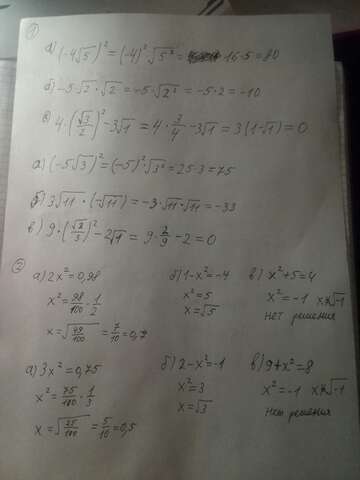 ①
а) (-4√5)² = (-4)² · √5² = 16·5 = 80
б) -5√2 · √2 = -5·√2² = -5·2 = -10
в) 4·(√3/2)² - 3√1 = 4 · 3/4 - 3√1 = 3(1-√1) = 0
а) (-5√3)² = (-5)² · √3² = 25·3 = 75
б) 3√11 · (-√11) = -3·√11·√11 = -33
в) 9·(√2/3)² - 2√1 = 9 · 2/9 - 2 = 0
②
а) 2x² = 0,98
x² = 98/100 · 1/2
x = √49/100 = 7/10 = 0,7
б) 1-x² = -4
x² = 5
x = √5
в) x² + 5 = 4
x² = -1 x≠√-1
нет решения
а) 3x² = 0,75
x² = 75/100 · 1/3
x = √25/100 = 5/10 = 0,5
б) 2-x² = -1
x² = 3
x = √3
в) 9+x² = 8
x² = -1 x≠√-1
нет решения